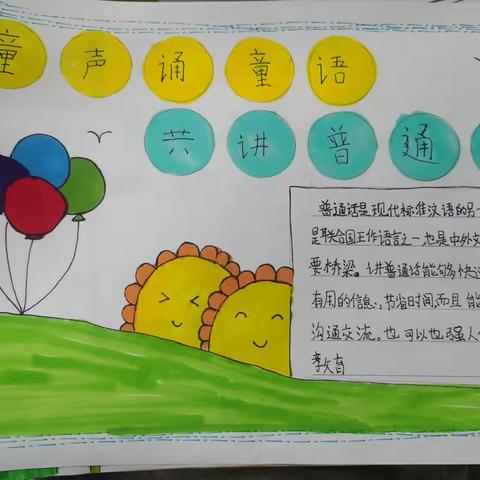 童声诵童语
共讲普通
普通话是现代标准汉语的另一
是联合国工作语言之一也是中外文
要桥梁。讲普通话能够快速
有用的信息,节省时间,而且能
沟通交流。也可以也强人们
孝文育